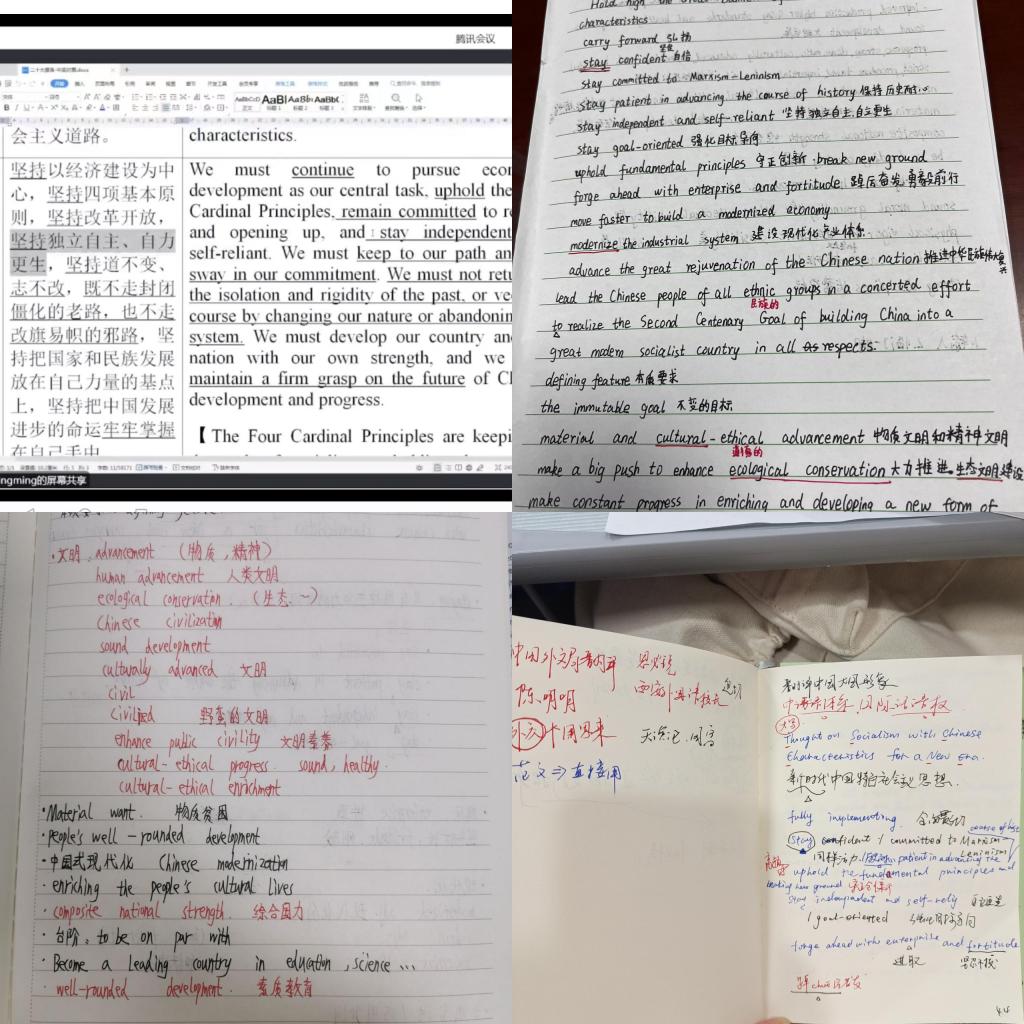 腾讯会议
二十大报告-中英对照.docx
AaBbCcD AaBl AaBb( AaBbC
会主义道路。
characteristics.
坚持以经济建设为中
心，坚持四项基本原
则，坚持改革开放，
坚持独立自主、自力
更生，坚持道不变、
志不改，既不走封闭
僵化的老路，也不走
改旗易帜的邪路，坚
持把国家和民族发展
放在自己力量的基点
上，坚持把中国发展
进步的命运牢牢掌握
在自己手中
We must continue to pursue econ
development as our central task, uphold the
Cardinal Principles, remain committed to re
and opening up, and stay independent
self-reliant. We must keep to our path an
sway in our commitment. We must not retu
the isolation and rigidity of the past, or ve
course by changing our nature or abandonin
system. We must develop our country an
nation with our own strength, and we
maintain a firm grasp on the future of Cl
development and progress.
【The Four Cardinal Principles are keepi
ngming的屏幕共享
Hold high the Great
characteristics
carry forward 弘扬
stay confident 自信
stay committed to Marxism-Leninism
stay patient in advancing the course of history 保持历史耐心
stay independent and self-reliant 坚持独立自主,自立更生
stay goal-oriented 强化目标导向
uphold fundamental principles 守正创新 break new ground
forge ahead with enterprise and fortitude 踔厉奋发,勇毅前行
move faster to build a modernized economy
modernize the industrial system 建设现代化产业体系
advance the great rejuvenation of the Chinese nation 推进中华民族伟大复兴
lead the Chinese people of all ethnic groups in a concerted effort
民族的
to realize the Second Centenary Goal of building China into a
great modern socialist country in all respects.
defining feature 本质要求
the immutable goal 不变的目标
material and cultural-ethical advancement 物质文明和精神文明
道德的
make a big push to enhance ecological conservation 大力推进生态文明建设
make constant progress in enriching and developing a new form of
·文明 advancement （物质,精神）
human advancement 人类文明
ecological conservation. （生态~）
Chinese civilization
sound development
culturally advanced 文明
civil
Civilized 野蛮的文明
enhance public civility 文明素养
cultural-ethical progress. sound, healthy.
cultural-ethical enrichment
·Material want. 物质贫困
·People's well-rounded development
·中国式现代化 Chinese modernization
·enriching the people's cultural lives
·composite national strength. 综合国力
·台阶: to be on par with
·Become a leading country in education, science ...
·well-rounded development. 素质教育
陈明明
范文⇒直接用
Thought on Socialism with Chinese
Characteristics for a New Era.
新时代中国特色社会主义思想.
fully implementing.
course of hist
Stay confident / committed to Marxism
Leninism
patient in advancing the
uphold the fundamental principles and
breaking new ground
Stay independent and self-rely
/ goal-oriented
forge ahead with enterprise and fortitude
进取